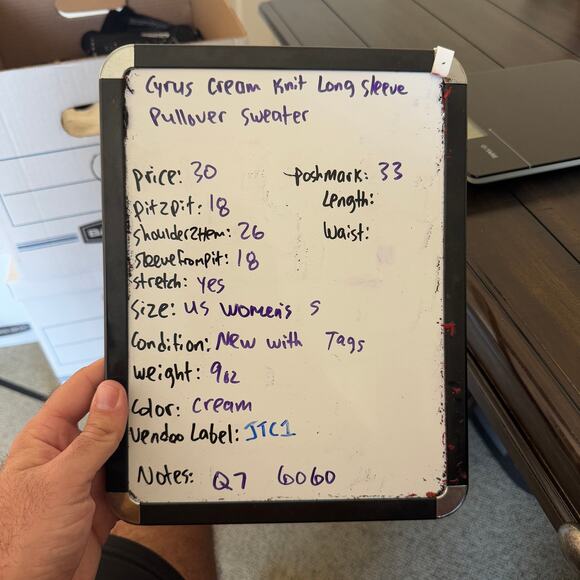 Cyrus Cream Knit Long Sleeve
Pullover Sweater
price: 30
poshmark: 33
pit2pit: 18
Length:
shoulder2Hem: 26
Waist:
sleevefrompit: 18
stretch: yes
Size: US Women's S
Condition: New with Tags
weight: 9oz
Color: Cream
Vendoo Label: JTC1
Notes: Q7 6060